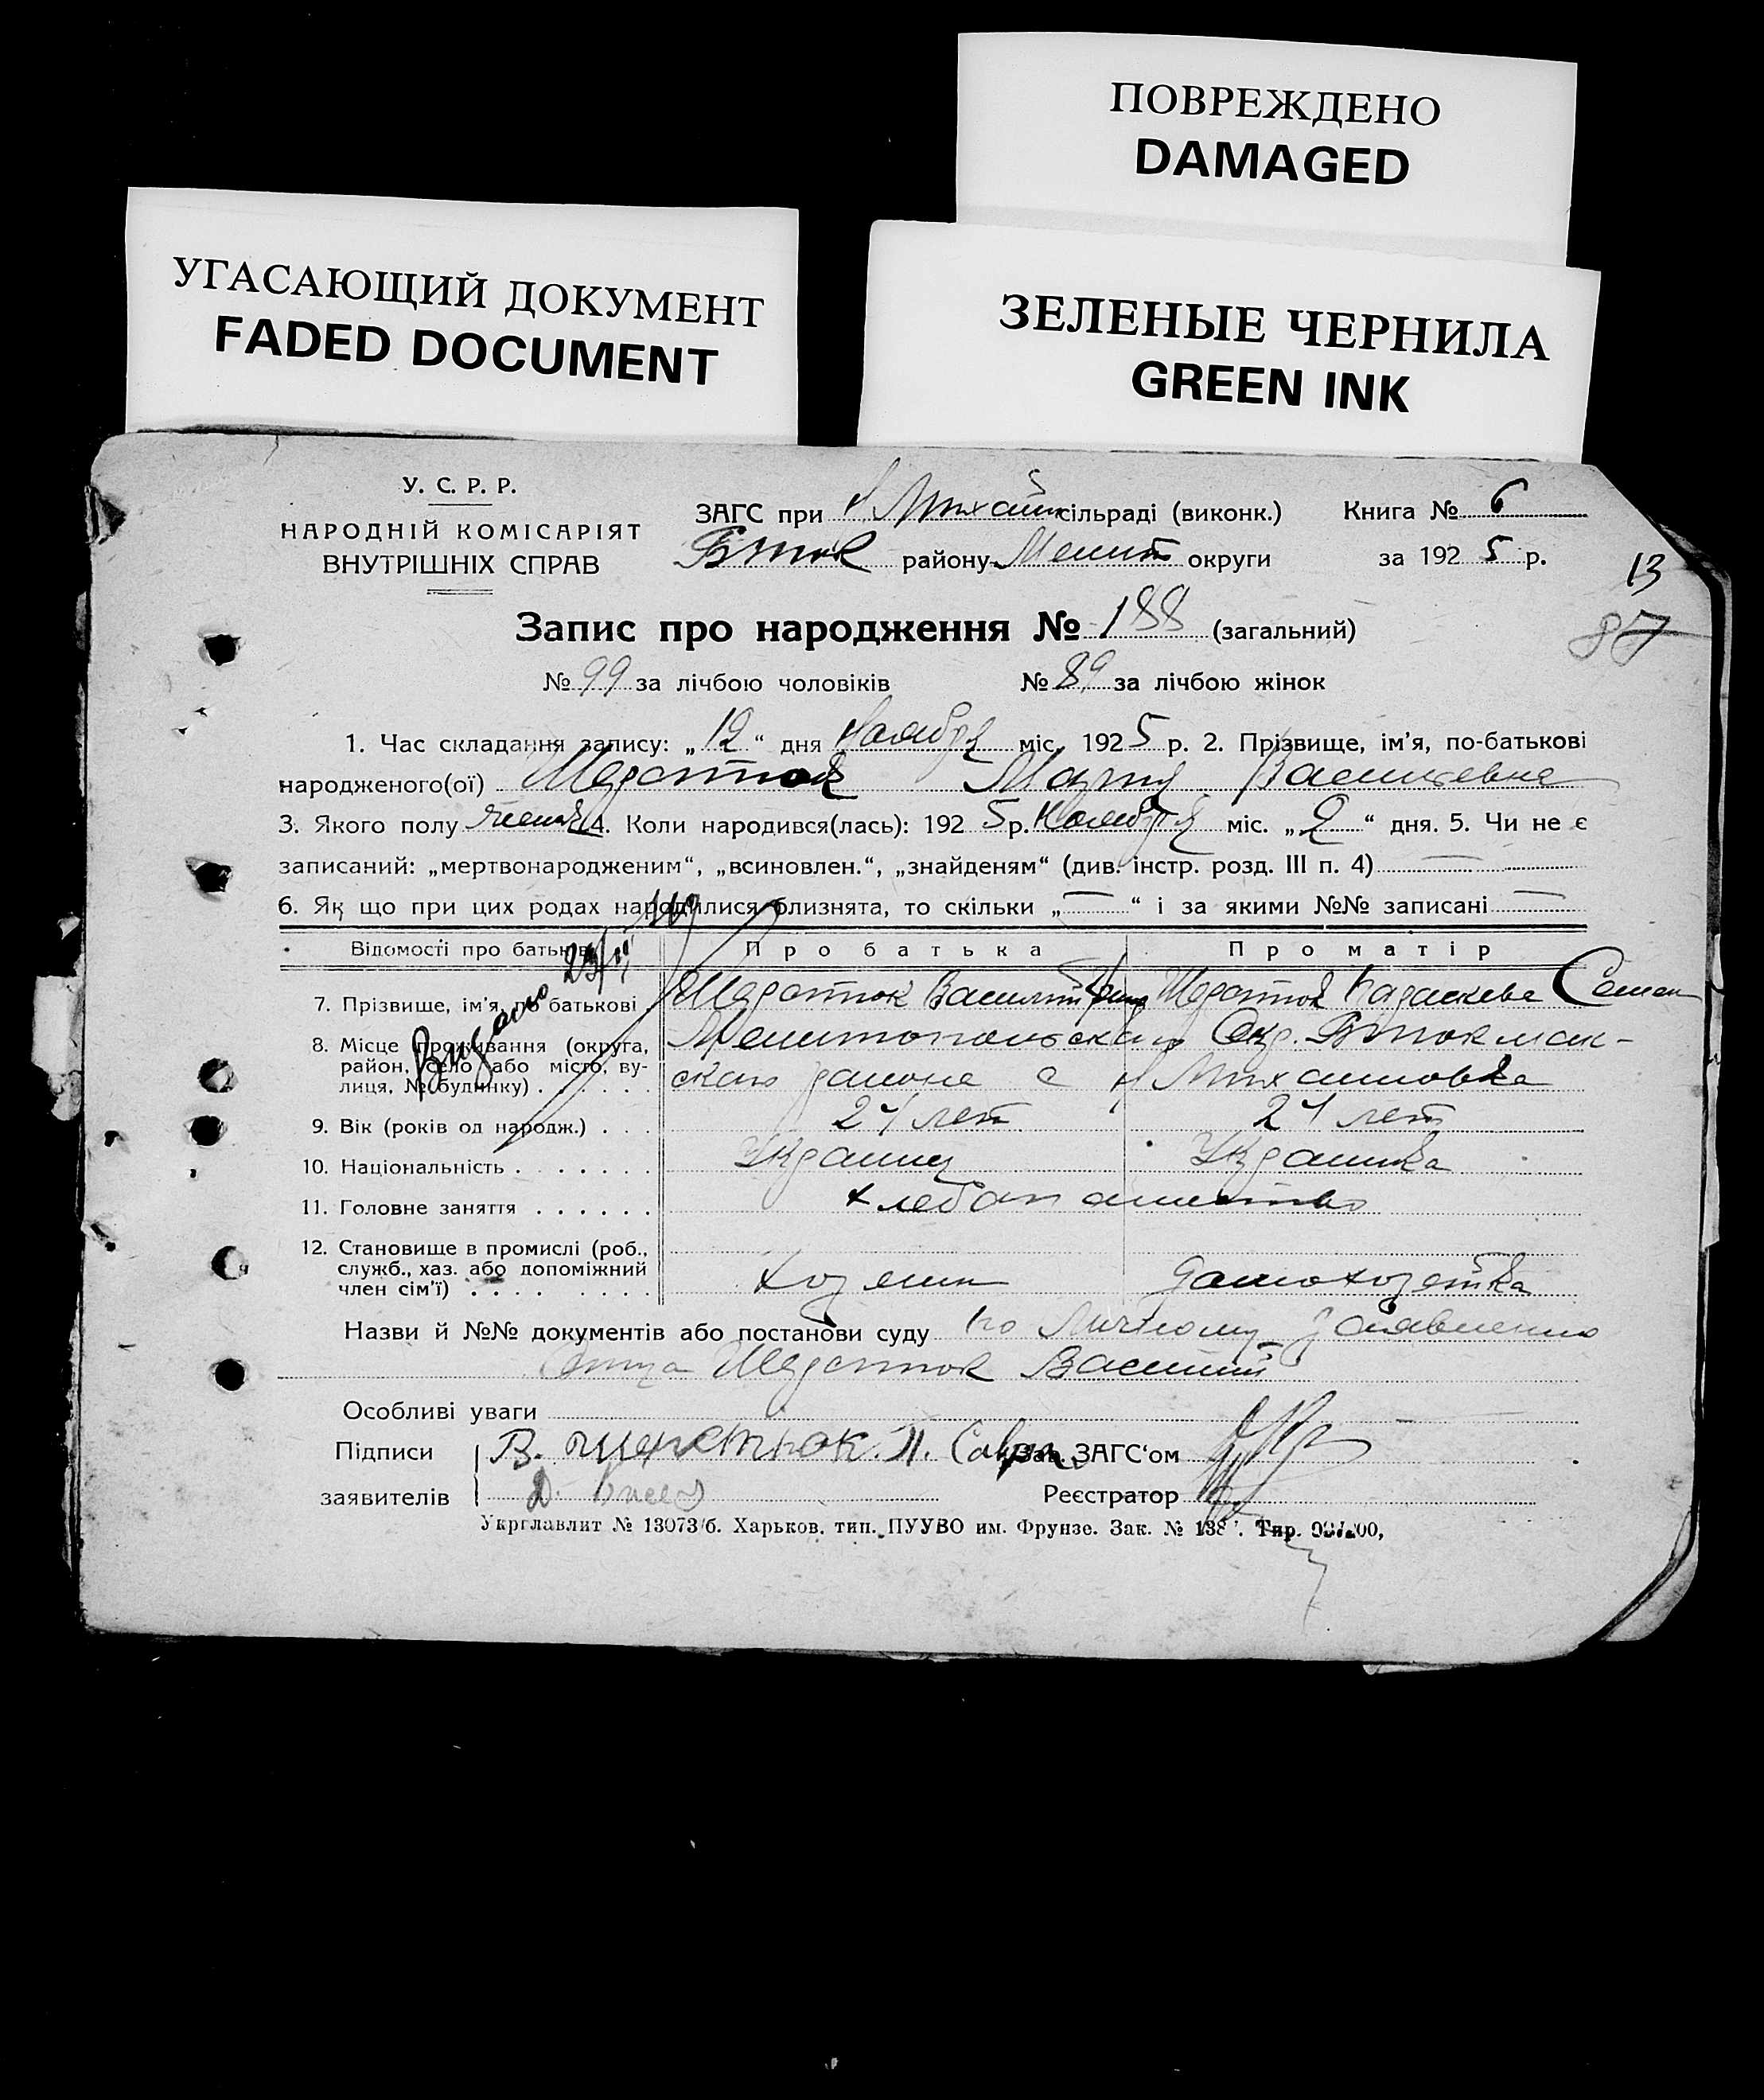 ПОВРЕЖДЕНО
DAMAGED
УГАСАЮЩИЙ ДОКУМЕНТ
FADED DOCUMENT
ЗЕЛЕНЫЕ ЧЕРНИЛА
GREEN INK
У. С. Р. Р.
НАРОДНІЙ КОМІСАРІЯТ
ВНУТРІШНІХ СПРАВ
ЗАГС при Н Михай сільраді (виконк.) Книга № 6
Бток району Мелит округи за 1925 р.
13
87
Запис про народження № 188 (загальний)
№ 99 за лічбою чоловіків № 89 за лічбою жінок
1. Час складання запису: „12“ дня Ноября міс. 1925 р. 2. Прізвище, ім'я, по-батькові
народженого(ої) Мария Васильевна
3. Якого полу 4. Коли народився(лась): 1925 р. Ноября міс. „2“ дня. 5. Чи не є
записаний: „мертвонародженим“, „всиновлен.“, „знайденям“ (див. інстр. розд. III п. 4) —
6. Як що при цих родах народилися близнята, то скільки „—“ і за якими №№ записані —
Відомості про батьків Про батька Про матір
7. Прізвище, ім'я, по батькові Василий Параскева Семен
8. Місце проживання (округа, район, село або місто, вулиця, № будинку) . Мелитопольская Окр. Бтокмак-
ского района с Н Михайловка
9. Вік (років од народж.) . . . 24 лет 24 лет
10. Національність . . . . . . . Украинец Украинка
11. Головне заняття . . . . . . хлебопашество
12. Становище в промислі (роб., служб., хаз. або допоміжний член сім'ї) . . . . . . . . хозяин домохозяйка
Назви й №№ документів або постанови суду по Личному заявлению
Отца Василий
Особливі уваги
Підписи В. П. Зав. ЗАГС'ом
заявителів Д. Реєстратор
Укрглавлит № 13073/б. Харьков. тип. ПУУВО им. Фрунзе. Зак. № 138